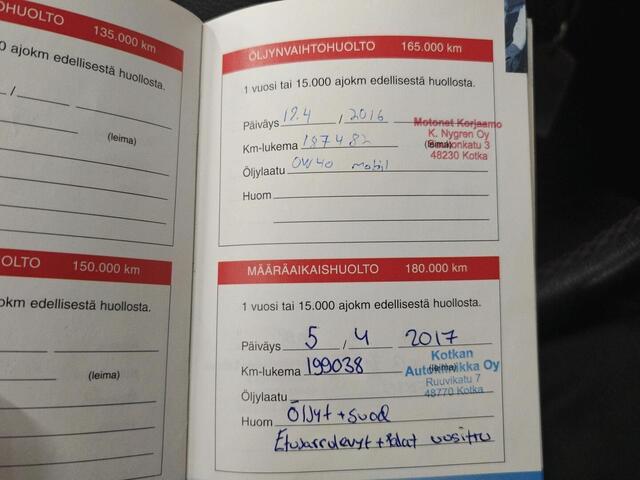 OHUOLTO 135.000 km
0 ajokm edellisestä huollosta.
/
(leima)
OLTO 150.000 km
okm edellisestä huollosta.
(leima)
ÖLJYNVAIHTOHUOLTO 165.000 km
1 vuosi tai 15.000 ajokm edellisestä huollosta.
Päiväys 19.4 / 2016
Motonet Korjaamo
K. Nygren Oy
Km-lukema 187482 (leima)
48230 Kotka
Öljylaatu 0W40 mobil
Huom
MÄÄRÄAIKAISHUOLTO 180.000 km
1 vuosi tai 15.000 ajokm edellisestä huollosta.
Päiväys 5 / 4 2017
Kotkan
Km-lukema 199038 (leima)
Autoklinikka Oy
Ruuvikatu 7
48770 Kotka
Öljylaatu
Huom Öljyt + suod
Etujarrulevyt + palat